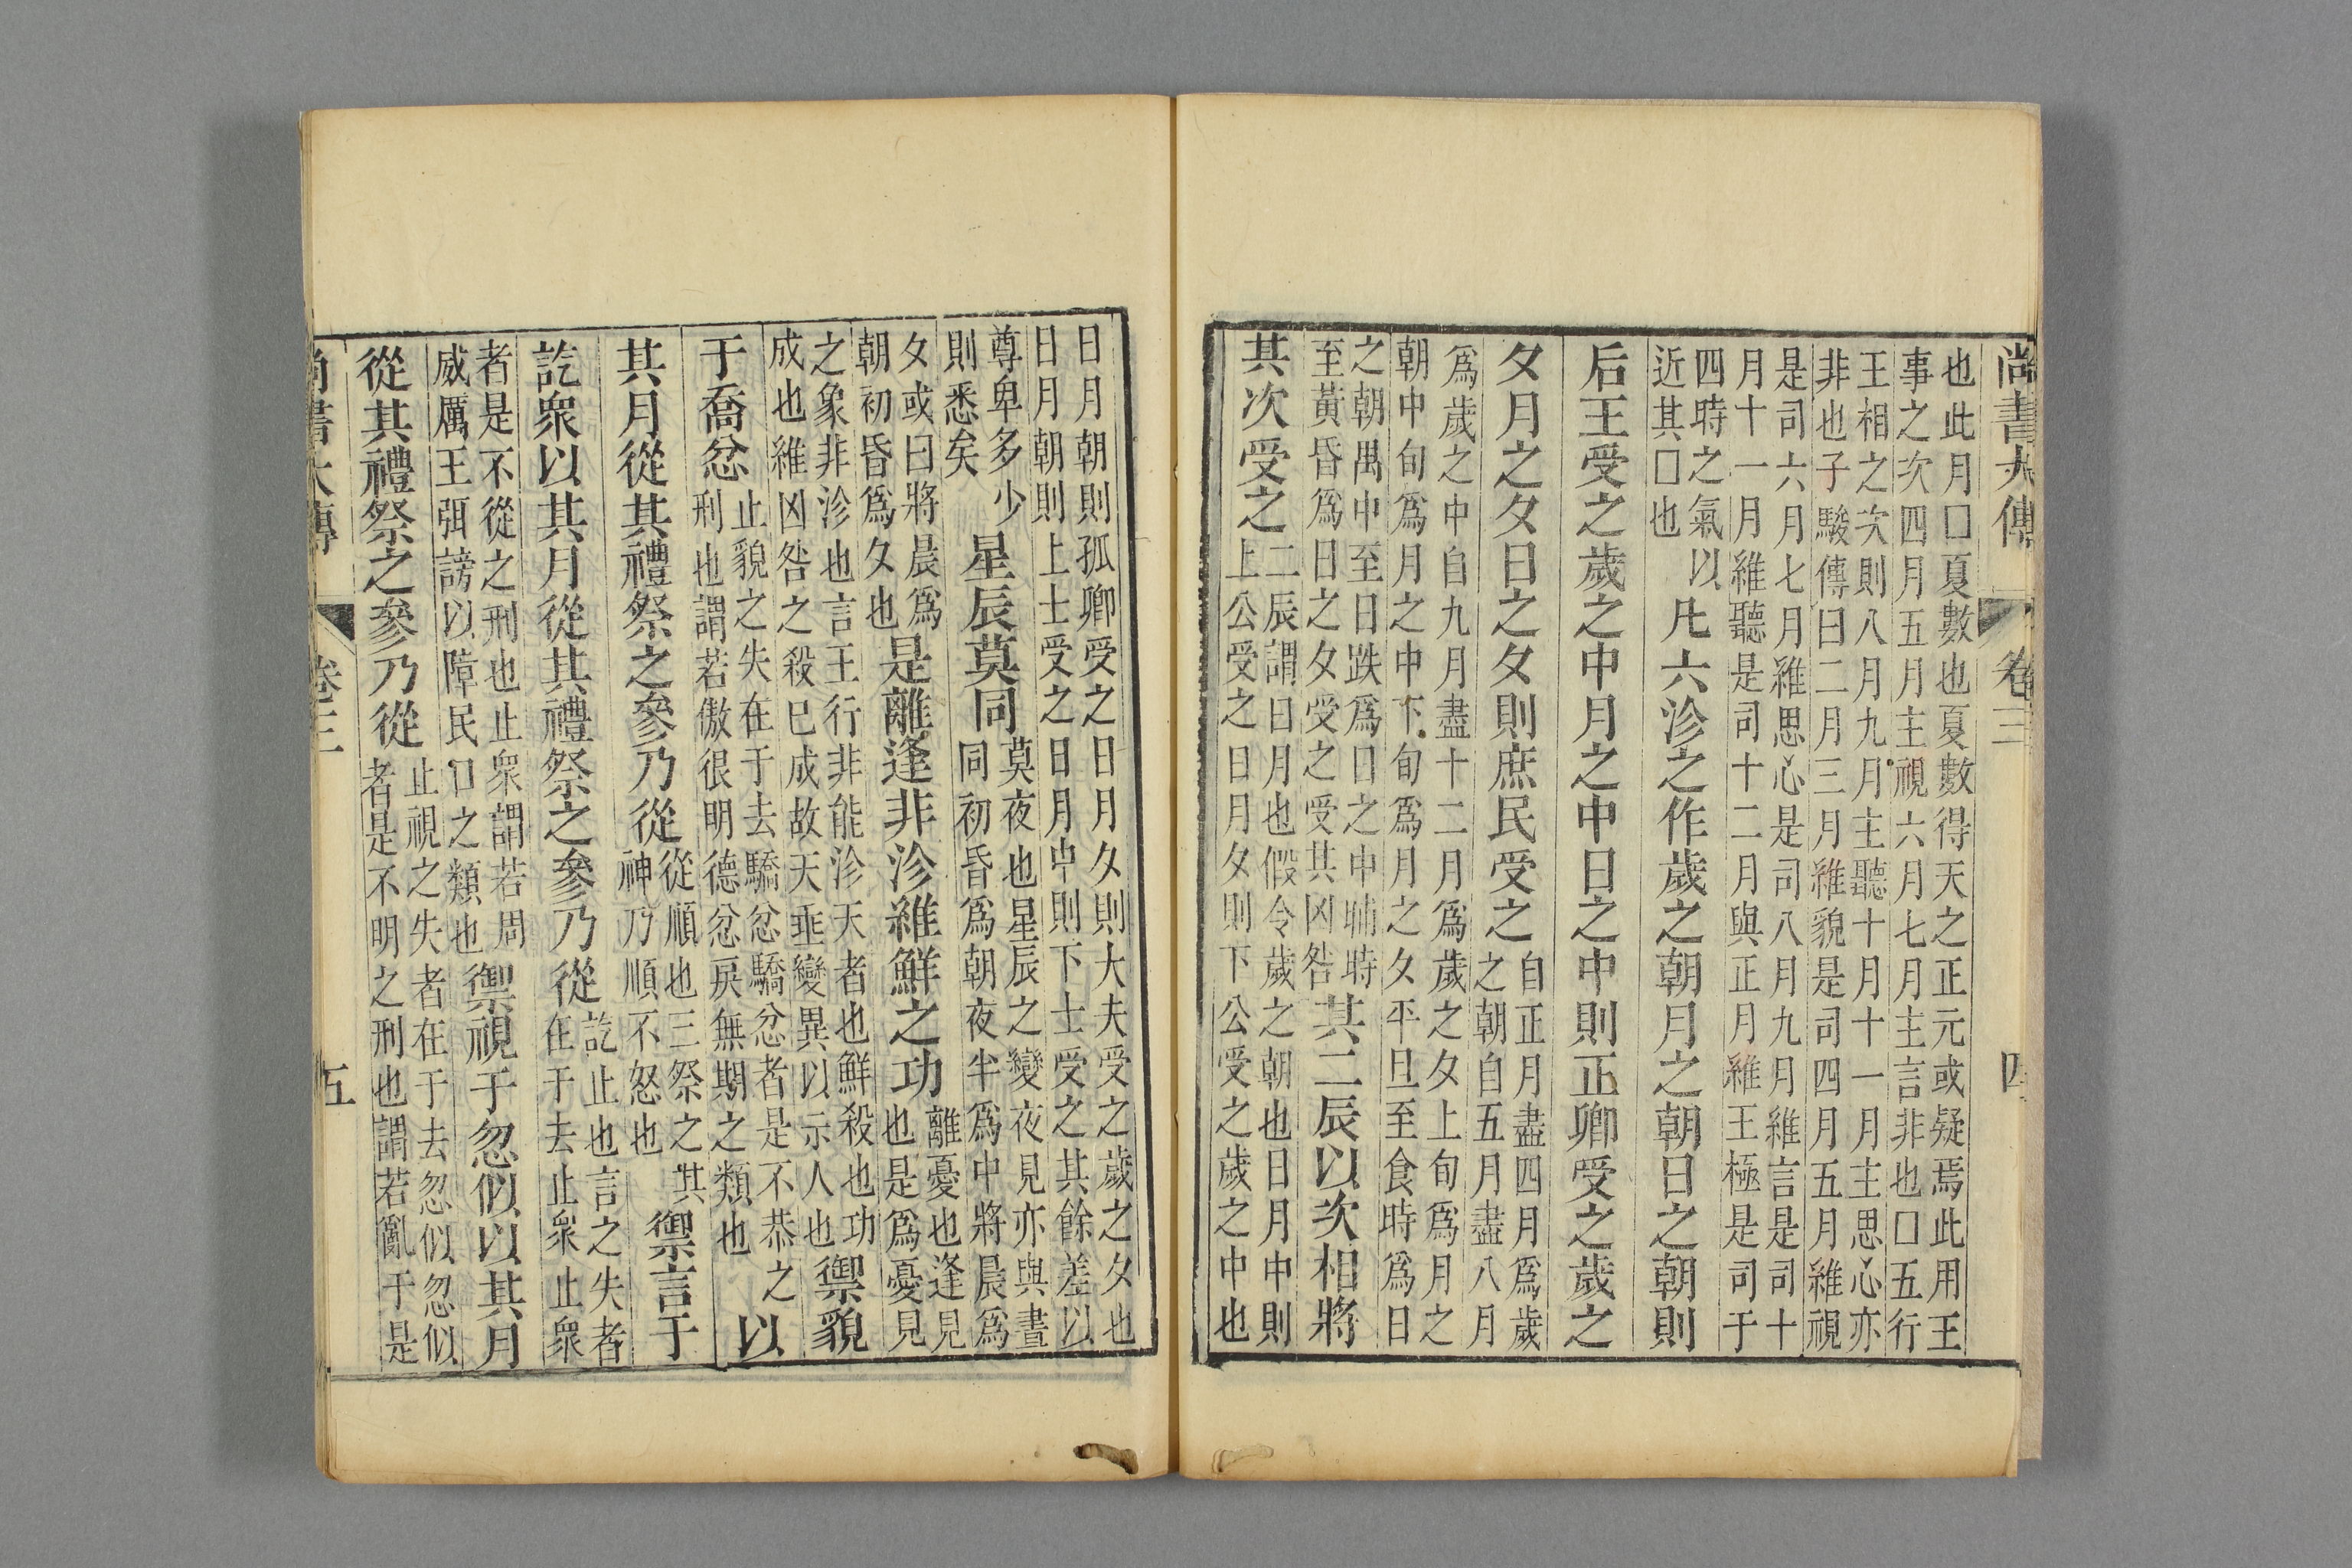 尚書大傳 卷三 四
也此月囗夏數也夏數得天之正元或疑焉此用王
事之次四月五月主視六月七月主言非也囗五行
王相之次則八月九月主聽十月十一月主思心亦
非也子駿傳曰二月三月維貌是司四月五月維視
是司六月七月維思心是司八月九月維言是司十
月十一月維聽是司十二月與正月維王極是司于
四時之氣以
近其囗也
凡六沴之作歲之朝月之朝日之朝則
后王受之歲之中月之中日之中則正卿受之歲之
夕月之夕日之夕則庶民受之
自正月盡四月爲歲
之朝自五月盡八月
爲歲之中自九月盡十二月爲歲之夕上旬爲月之
朝中旬爲月之中下旬爲月之夕平旦至食時爲日
之朝禺中至日跌爲日之中晡時
至黃昏爲日之夕受之受其凶咎
其二辰以次相將
其次受之
二辰謂日月也假令歲之朝也日月中則
上公受之日月夕則下公受之歲之中也
日月朝則孤卿受之日月夕則大夫受之歲之夕也
日月朝則上士受之日月中則下士受之其餘差以
尊卑多少
則悉矣
星辰莫同
莫夜也星辰之變夜見亦與晝
同初昏爲朝夜半爲中將晨爲
夕或曰將晨爲
朝初昏爲夕也
是離逢非沴維鮮之功
離憂也逢見
也是爲憂見
之象非沴也言王行非能沴天者也鮮殺也功
成也維凶咎之殺已成故天垂變異以示人也
禦貌
于喬忿
止貌之失在于去驕忿驕忿者是不恭之
刑也謂若傲很明德忿戾無期之類也
以
其月從其禮祭之參乃從
從順也三祭之其
神乃順不怒也
禦言于
訖衆以其月從其禮祭之參乃從
訖止也言之失者
在于去止衆止衆
者是不從之刑也止衆謂若周
威厲王弭謗以障民口之類也
禦視于忽似以其月
從其禮祭之參乃從
止視之失者在于去忽似忽似
者是不明之刑也謂若亂于是
尚書大傳 卷三 五